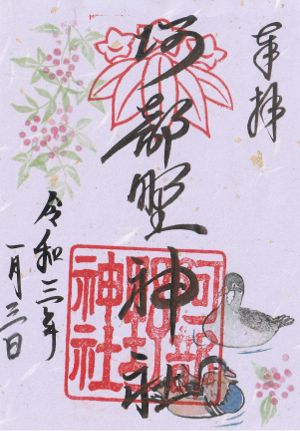 奉拝
阿部野神社
令和三年
一月三日
阿部
野
神社